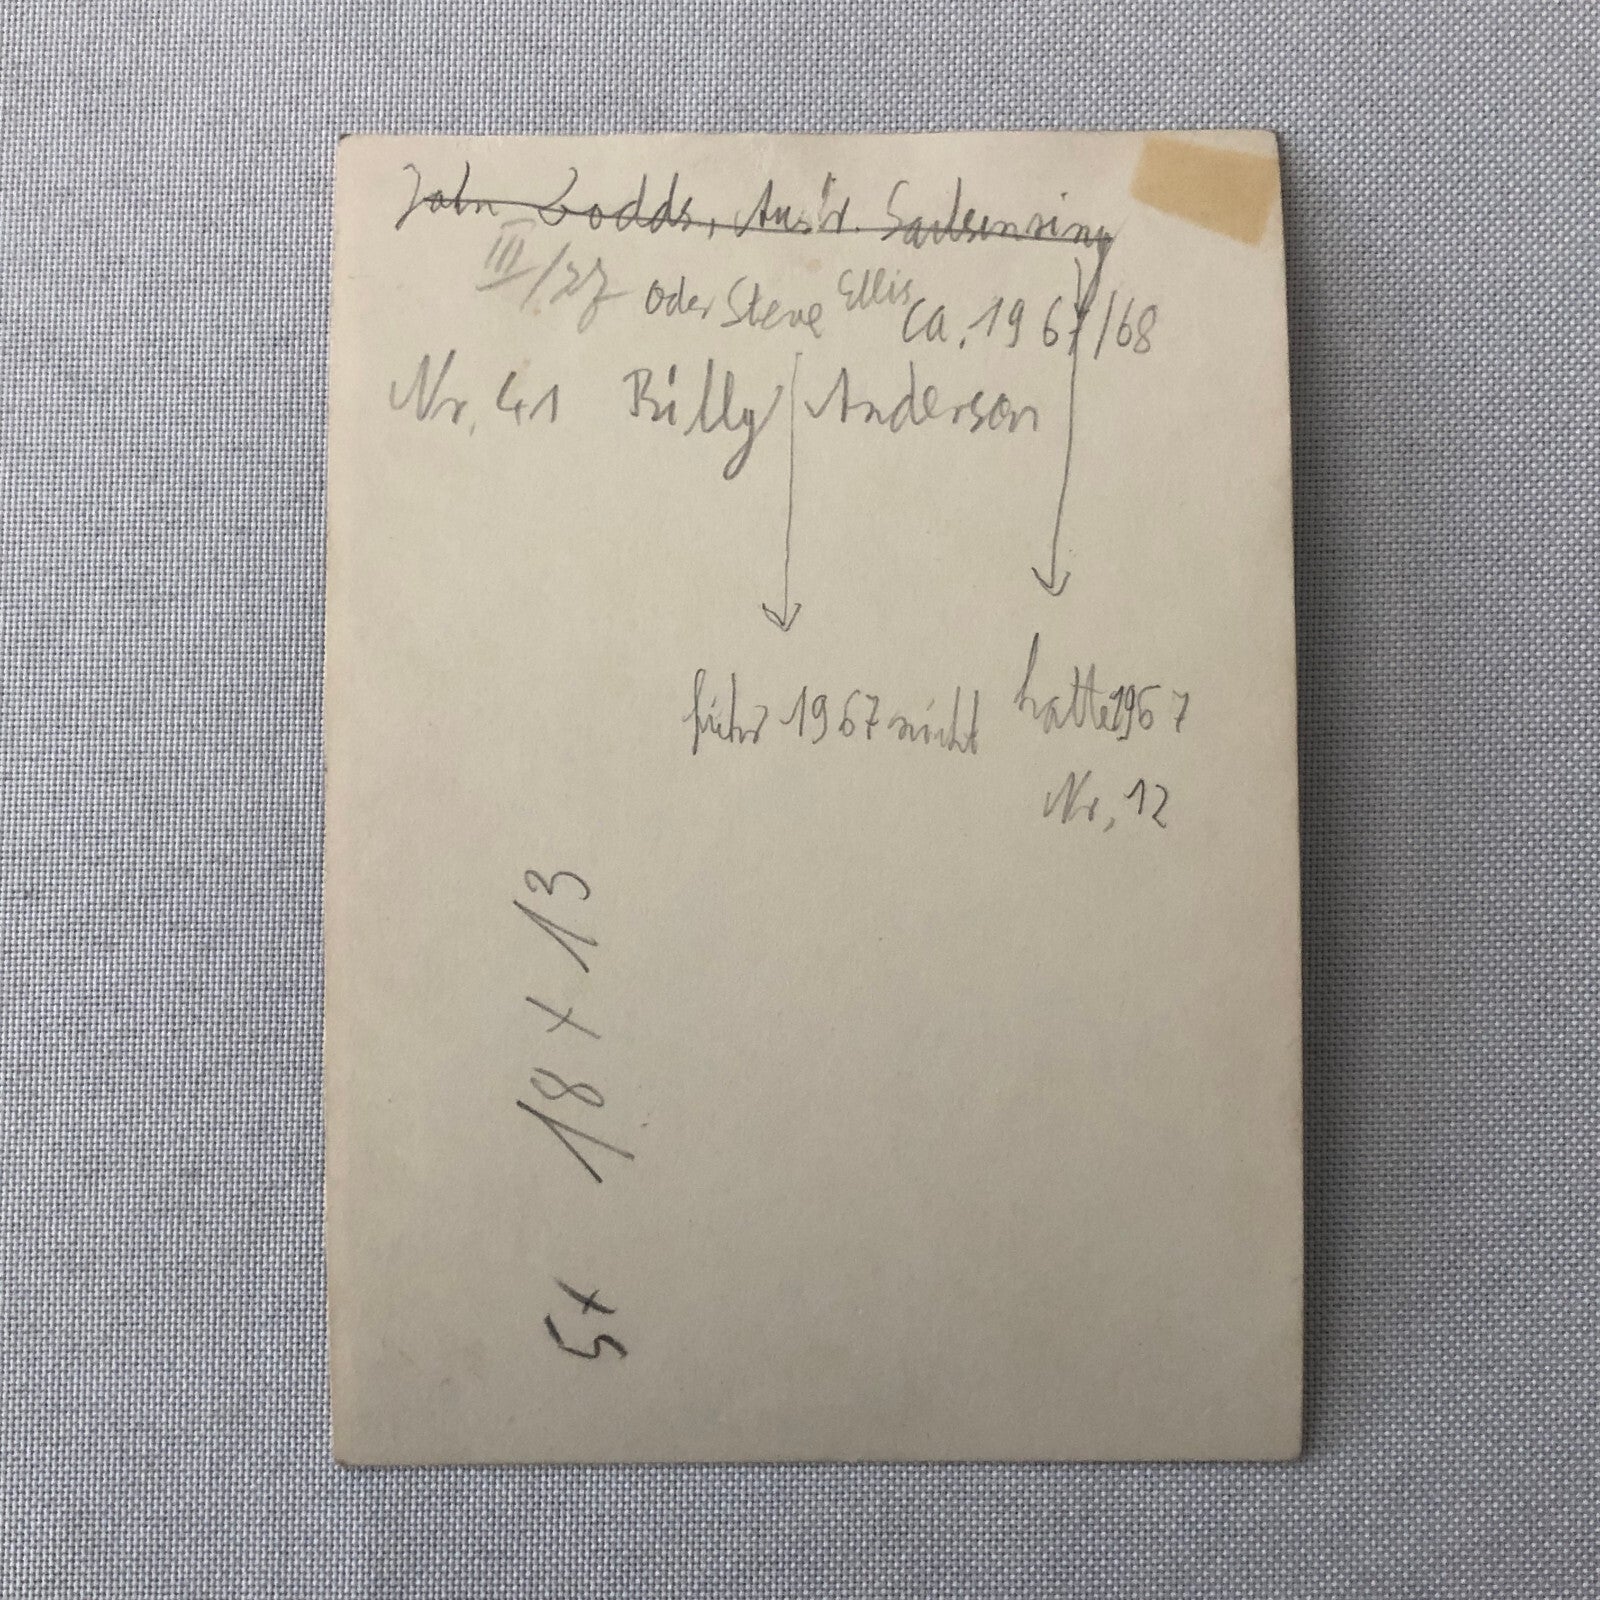 John Dodds, Austr. Sachsenring
III/27 oder Steve Ellis ca. 1967/68
Nr. 41 Billy Anderson
fuhr 1967 nicht
hatte 1967
Nr. 12
18 x 13
5x